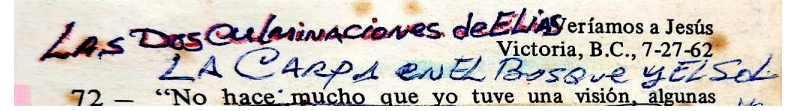 LAS DOS CULMINACIONES de ELIAS Veríamos a Jesús
Victoria, B.C., 7-27-62
LA CARPA EN EL BOSQUE Y EL SOL
72 – “No hace mucho que yo tuve una visión, algunas